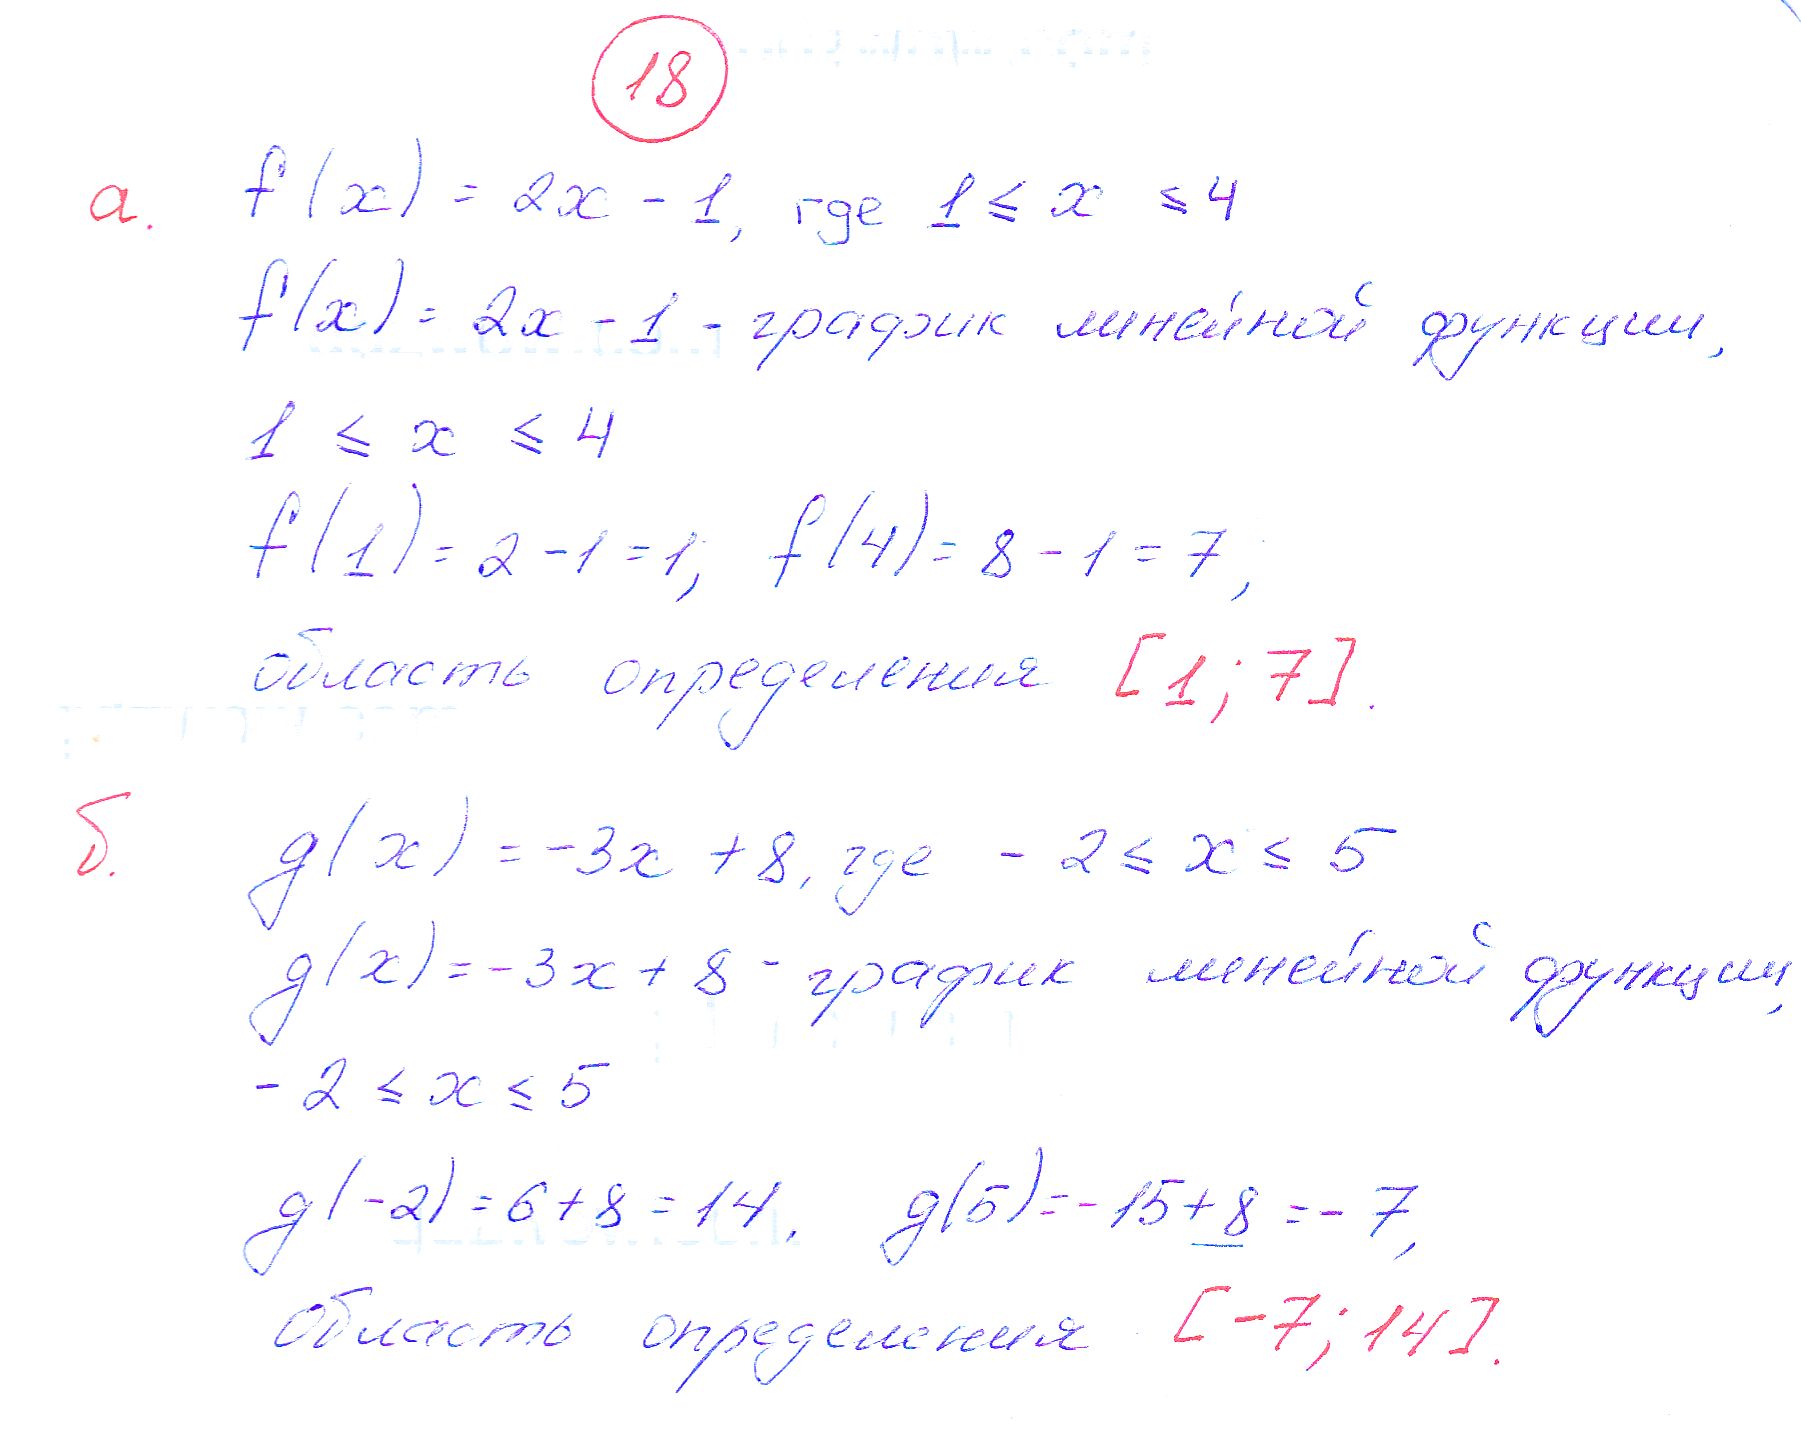 18
а. f(x) = 2x - 1, где 1 ≤ x ≤ 4
f(x) = 2x - 1 - график линейной функции,
1 ≤ x ≤ 4
f(1) = 2 - 1 = 1, f(4) = 8 - 1 = 7,
область определения [1; 7].
б. g(x) = -3x + 8, где - 2 ≤ x ≤ 5
g(x) = -3x + 8 - график линейной функции,
- 2 ≤ x ≤ 5
g(-2) = 6 + 8 = 14, g(5) = -15 + 8 = - 7,
Область определения [-7; 14].